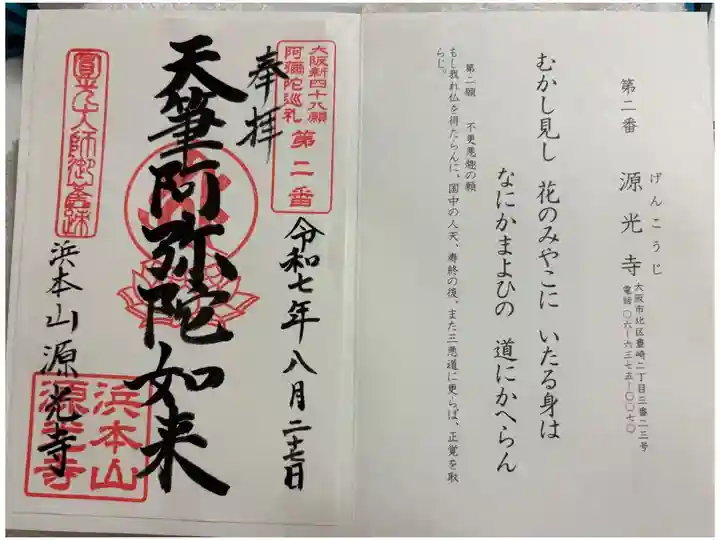 第二番　源光寺
げんこうじ
大阪市北区豊崎二丁目三番二三号
電話〇六ー六三七五ー〇〇七〇
むかし見し　花のみやこに　いたる身は
なにかまよひの　道にかへらん
第二願　不更悪趣の願
もし我れ仏を得たらんに、国中の人天、寿終の後、また三悪道に更らば、正覚を取
らじ。
大阪新四十八願
阿彌陀巡礼
第二番
奉拝
令和七年八月二十七日
天筆阿弥陀如来
圓光大師御舊跡
浜本山源光寺
浜本山
源光寺